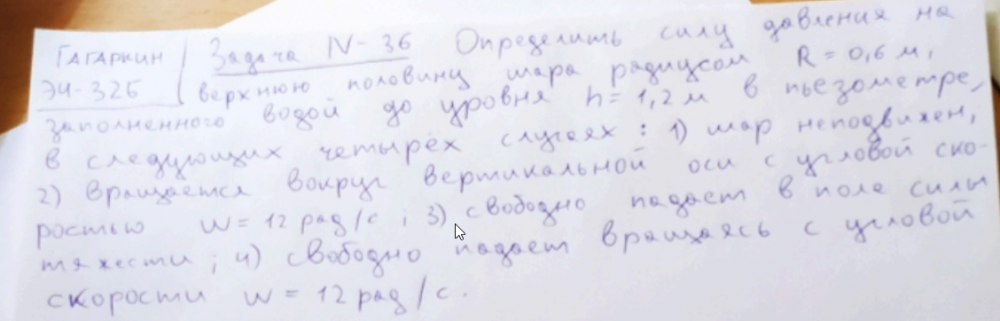 Гагаркин Задача IV-36 Определить силу давления на
ЭЧ-32Б верхнюю половину шара радиусом R = 0,6 м,
заполненного водой до уровня h = 1,2 м в пьезометре,
в следующих четырёх случаях : 1) шар неподвижен,
2) вращается вокруг вертикальной оси с угловой ско-
ростью w = 12 рад/с ; 3) свободно падает в поле силы
тяжести ; 4) свободно падает вращаясь с угловой
скорости w = 12 рад/с.